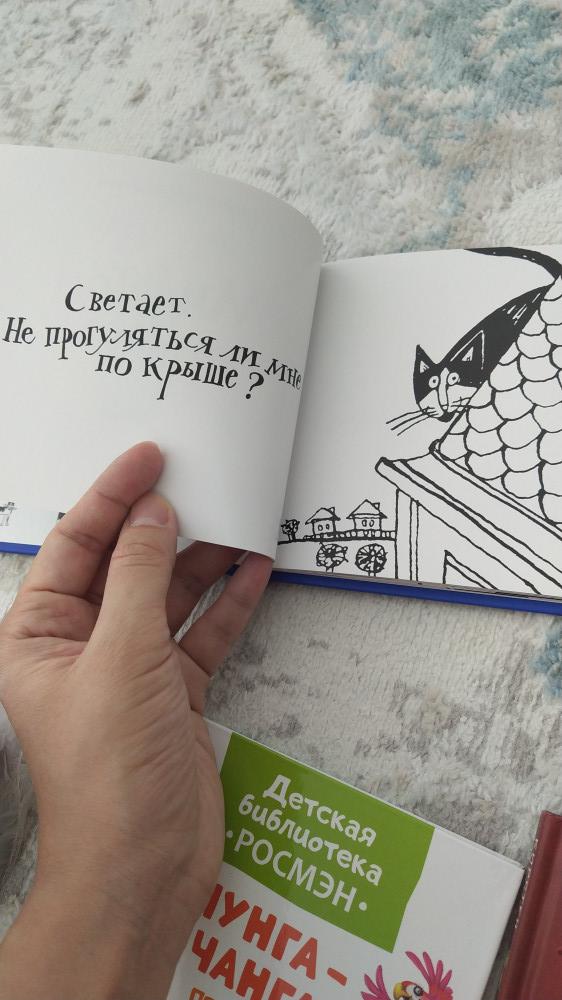 Светает.
Не прогуляться ли мне
по крыше?
Детская
библиотека
•РОСМЭН•
ЧУНГА-
ЧАНГА